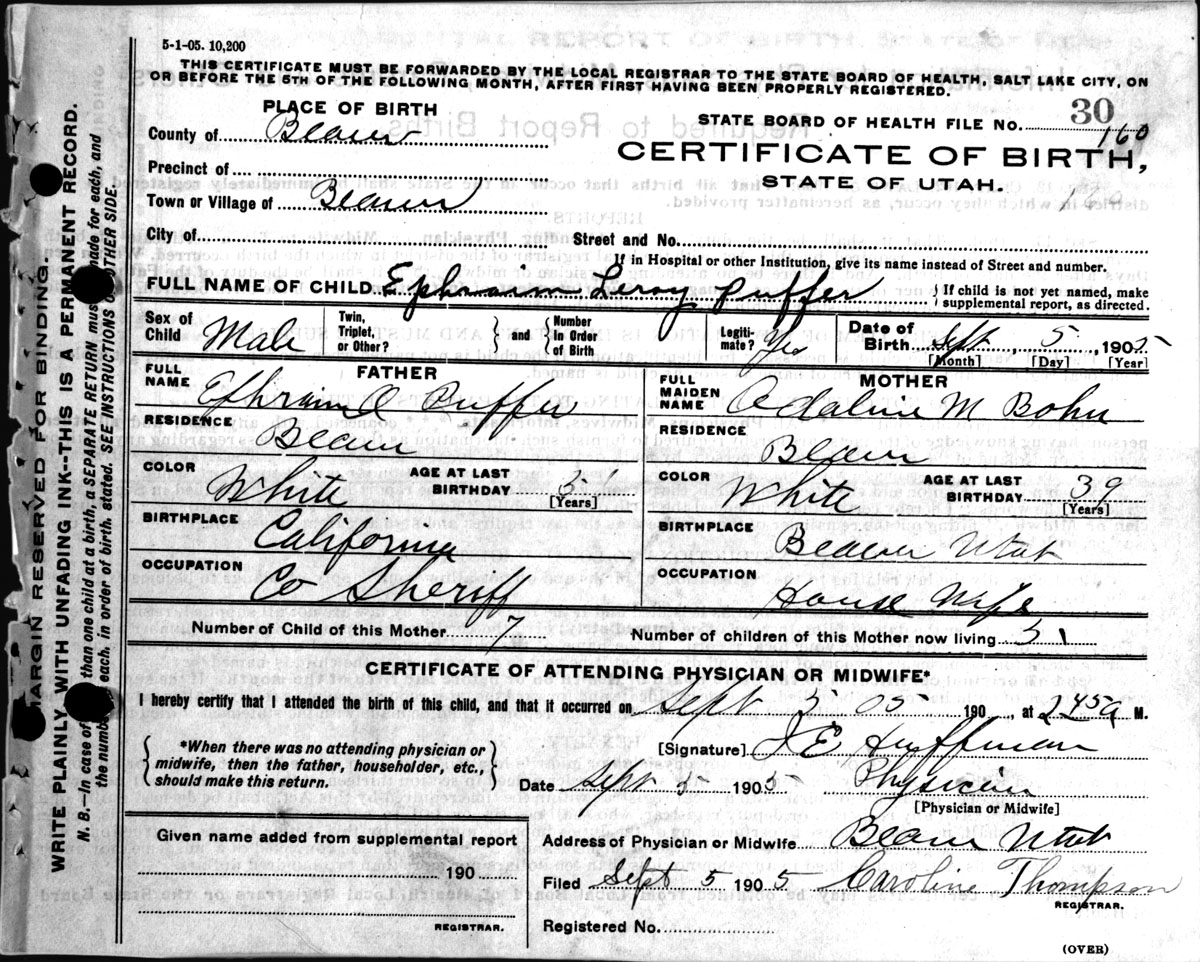 5-1-05. 10,200
THIS CERTIFICATE MUST BE FORWARDED BY THE LOCAL REGISTRAR TO THE STATE BOARD OF HEALTH, SALT LAKE CITY, ON
OR BEFORE THE 5TH OF THE FOLLOWING MONTH, AFTER FIRST HAVING BEEN PROPERLY REGISTERED.
PLACE OF BIRTH
County of Beaver
Precinct of
Town or Village of Beaver
STATE BOARD OF HEALTH FILE NO. 30
160
CERTIFICATE OF BIRTH,
STATE OF UTAH.
City of Street and No.
If in Hospital or other Institution, give its name instead of Street and number.
FULL NAME OF CHILD Ephraim Leroy Puffer } If child is not yet named, make
supplemental report, as directed.
Sex of Child Male Twin, Triplet, or Other? } and { Number In Order of Birth Legiti- mate? Yes Date of Birth Sept 5, 1905
[Month] [Day] [Year]
FATHER
FULL NAME Ephraim Puffer
RESIDENCE Beaver
COLOR White AGE AT LAST BIRTHDAY
[Years]
BIRTHPLACE California
OCCUPATION Co Sheriff
MOTHER
FULL MAIDEN NAME Adaline M Bohn
RESIDENCE Beaver
COLOR White AGE AT LAST BIRTHDAY 39
[Years]
BIRTHPLACE Beaver Utah
OCCUPATION House Wife
Number of Child of this Mother 7 Number of children of this Mother now living 5
CERTIFICATE OF ATTENDING PHYSICIAN OR MIDWIFE*
I hereby certify that I attended the birth of this child, and that it occurred on Sept 5 05 190 , at 2 45 a M.
*When there was no attending physician or
midwife, then the father, householder, etc.,
should make this return.
[Signature] E Huffman
Date Sept 5 1905 Physician
[Physician or Midwife]
Address of Physician or Midwife Beaver Utah
Filed Sept 5 1905 Caroline Thompson
REGISTRAR.
Registered No.
Given name added from supplemental report
190
REGISTRAR.
(OVER)
MARGIN RESERVED FOR BINDING.
WRITE PLAINLY WITH UNFADING INK--THIS IS A PERMANENT RECORD.
N. B.—In case of than one child at a birth, a SEPARATE RETURN must made for each, and
the number each, in order of birth stated. SEE INSTRUCTIONS OTHER SIDE.